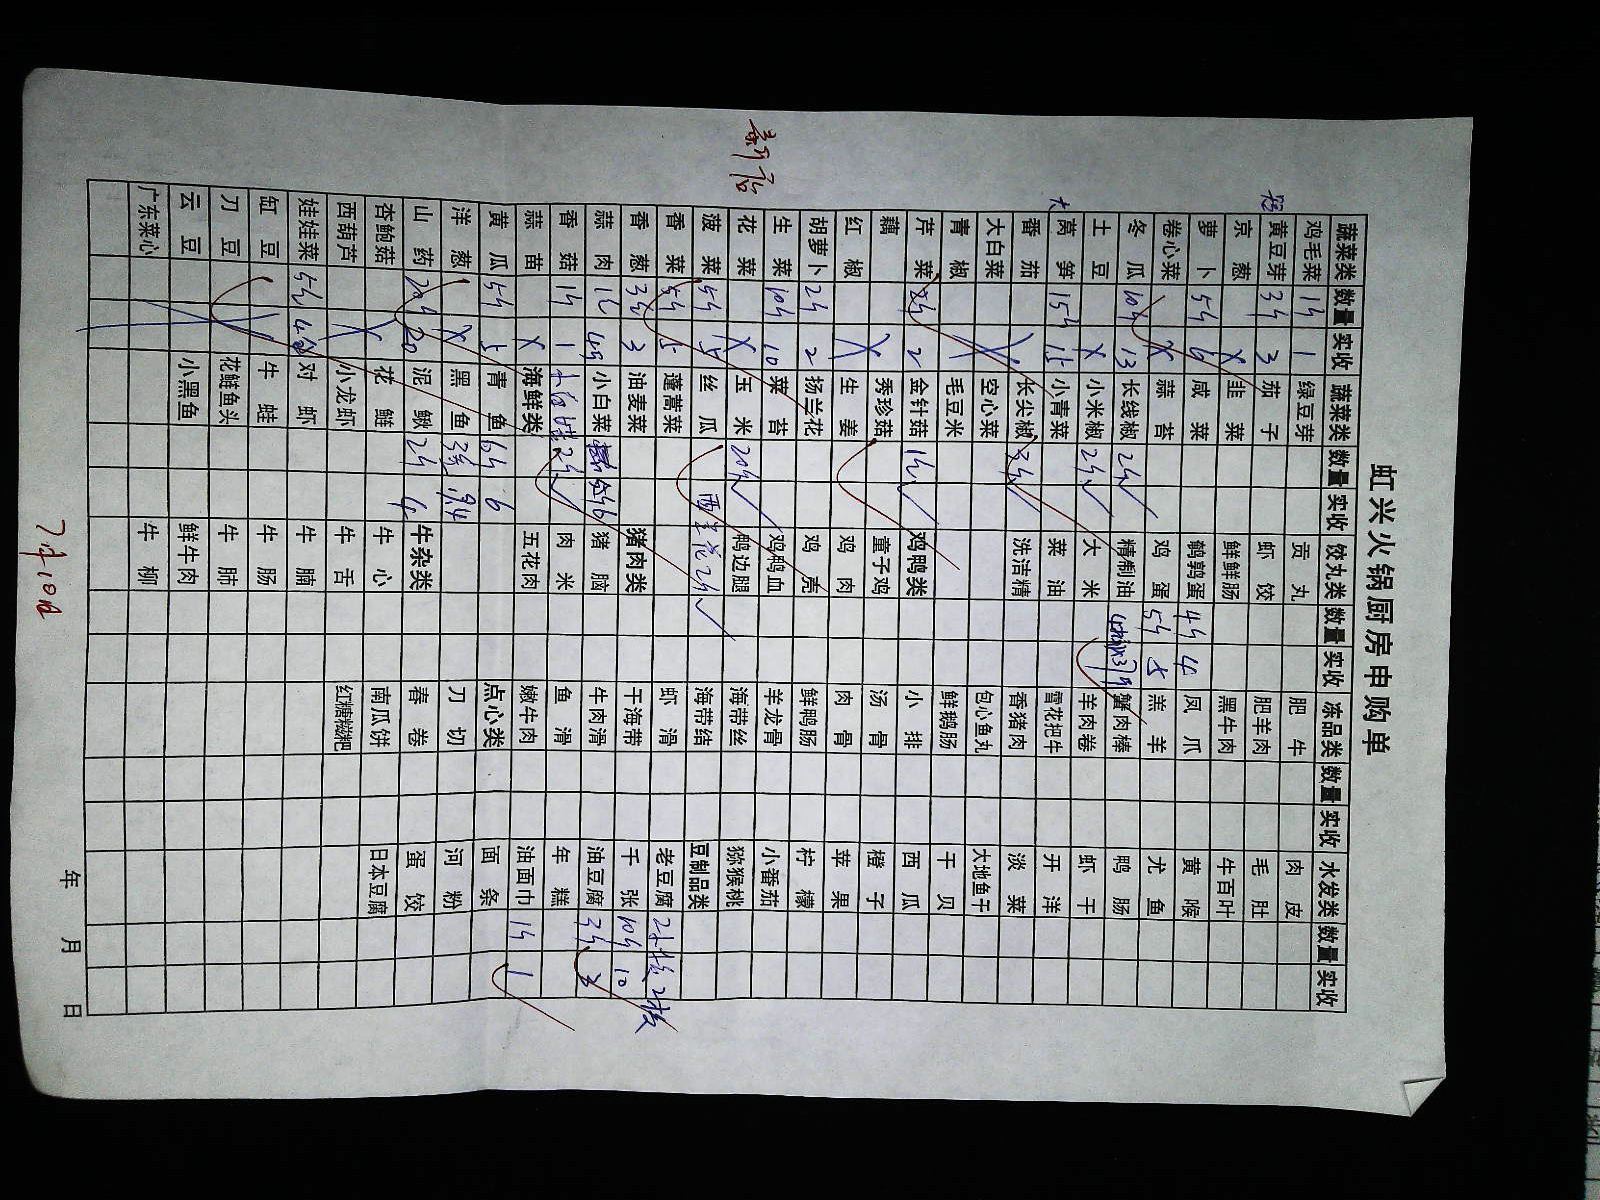 虹兴火锅厨房申购单
蔬菜类 数量 实收 蔬菜类 数量 实收 饺丸类 数量 实收 冻品类 数量 实收 水发类 数量 实收
鸡毛菜 1斤 1 绿豆芽 贡丸 肥牛 肉皮
黄豆芽 3斤 3 茄子 虾饺 肥羊肉 毛肚
京葱 X 韭菜 鲜鲜肠 黑牛肉 牛百叶
萝卜 5斤 6 咸菜 鹌鹑蛋 4斤 4 凤爪 黄喉
卷心菜 X 蒜苔 鸡蛋 5斤 5 羔羊 尤鱼
冬瓜 10斤 13 长线椒 2斤 ✓ 精制油 蟹肉棒 鸭肠
土豆 X 小米椒 2斤 ✓ 大米 羊肉卷 虾干
大 莴笋 15斤 15 小青菜 菜油 雪花把牛 开洋
番茄 长尖椒 3斤 ✓ 洗洁精 香猪肉 淡菜
大白菜 X 空心菜 包心鱼丸 大地鱼干
青椒 毛豆米 鲜鹅肠 干贝
芹菜 2斤 2 金针菇 1斤 ✓ 鸡鸭类 小排 西瓜
藕 X 秀珍菇 童子鸡 汤骨 橙子
红椒 生姜 鸡肉 肉骨 苹果
胡萝卜 2斤 2 扬兰花 鸡壳 鲜鸭肠 柠檬
生菜 10斤 10 菜苔 鸡鸭血 羊龙骨 小番茄
新店 花菜 X 玉米 20斤 ✓ 鸭边腿 海带丝 猕猴桃
菠菜 5斤 丝瓜 西兰花2斤 ✓ 海带结 豆制品类
香菜 5斤 5 蓬蒿菜 虾滑 老豆腐 2板 2板
香葱 3斤 3 油麦菜 猪肉类 干海带 千张 10斤 10
蒜肉 小白菜 猪脑 牛肉滑 油豆腐 3斤 3
香菇 1斤 1 2斤 ✓ 肉米 鱼滑 年糕
蒜苗 X 海鲜类 五花肉 嫩牛肉 油面巾 1斤 1
黄瓜 5斤 5 青鱼 6斤 6 点心类 面条
洋葱 X 黑鱼 刀切 河粉
山药 20斤 20 泥鳅 2斤 牛杂类 春卷 蛋饺
杏鲍菇 X 花鲢 牛心 南瓜饼 日本豆腐
西葫芦 X 小龙虾 牛舌 红糖糍粑
娃娃菜 5斤 对虾 牛腩
缸豆 牛蛙 牛肠
刀豆 花鲢鱼头 牛肺
云豆 小黑鱼 鲜牛肉
广东菜心 牛柳
7月10日
年 月 日